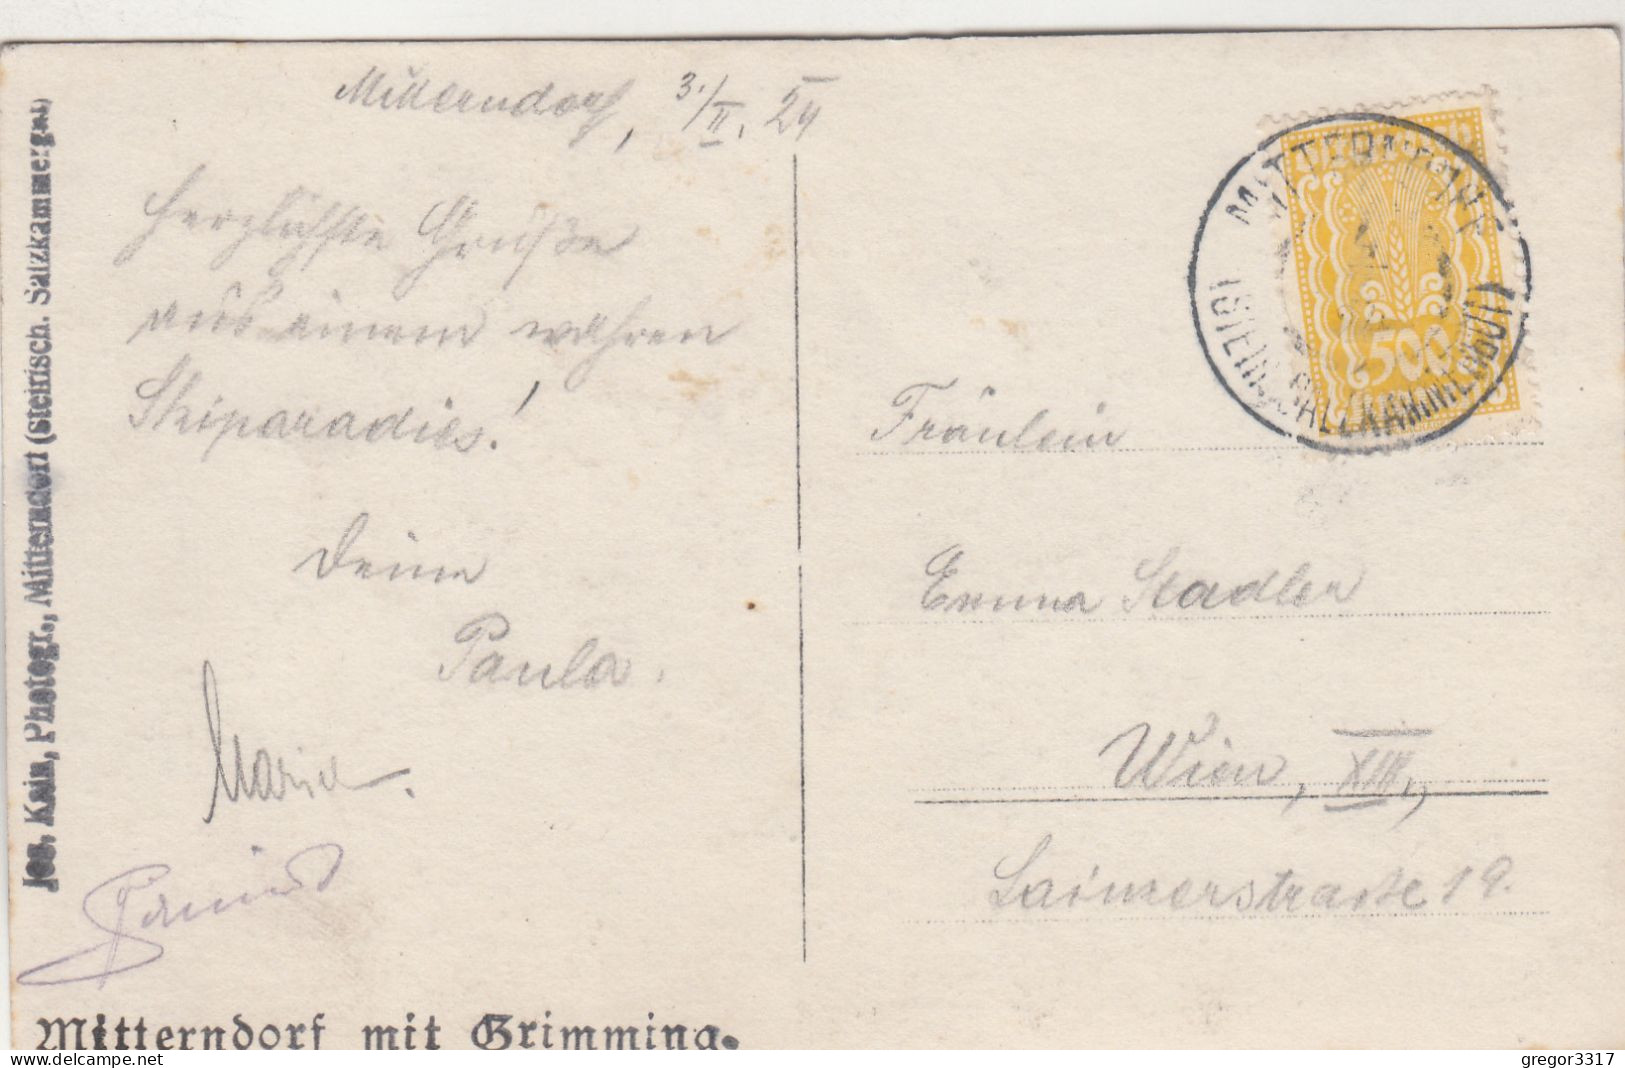 Mitterndorf, 3./II. 24
Herzlichste Grüße
aus einem wahren
Skiparadies!
Deine
Paula.
Maria.
Fräulein
Emma Stadler
Wien, XIII.,
Lainzerstraße 19.
500
MITTERNDORF
(STEIR. SALZKAMMERGUT)
Jos. Kain, Photogr., Mitterndorf (steirisch. Salzkammergut)
Mitterndorf mit Grimming.
delcampe.net
gregor3317